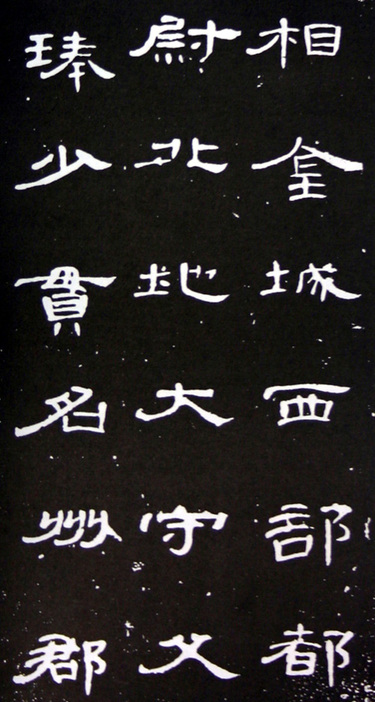 相金城西部都
尉北地大守父
琫少貫名州郡